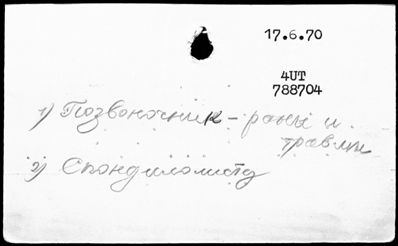 17.6.70
4UT
788704
1) Позвоночник – раны и
травмы
2) Спондилолистз